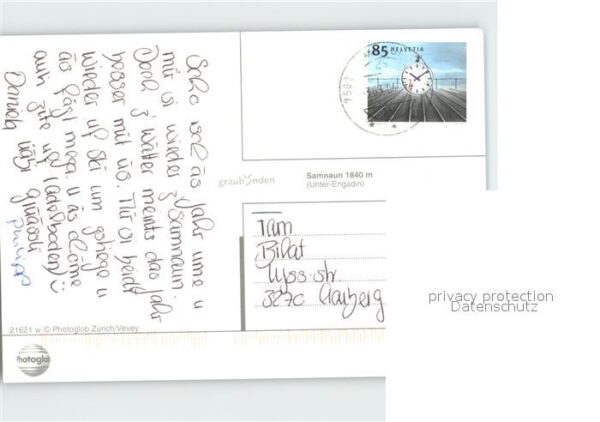 Scho isch äs Jahr ume u
mir si wieder z'Samnaun.
Doch z'Wätter meints das Jahr
besser mit üs. Mir si beidi
wieder uf Ski um gshogo u
äs fägt mega. U äs chöme
auti zite uf (adelboden) ☺
liäbi grüässli
Daniela
85 HELVETIA
7563
graubünden
Samnaun 1840 m
(Unter-Engadin)
Fam
Bilat
Lyss-str.
3270 Aarberg
21621 w © Photoglob Zürich/Vevey
Photoglob
privacy protection
Datenschutz